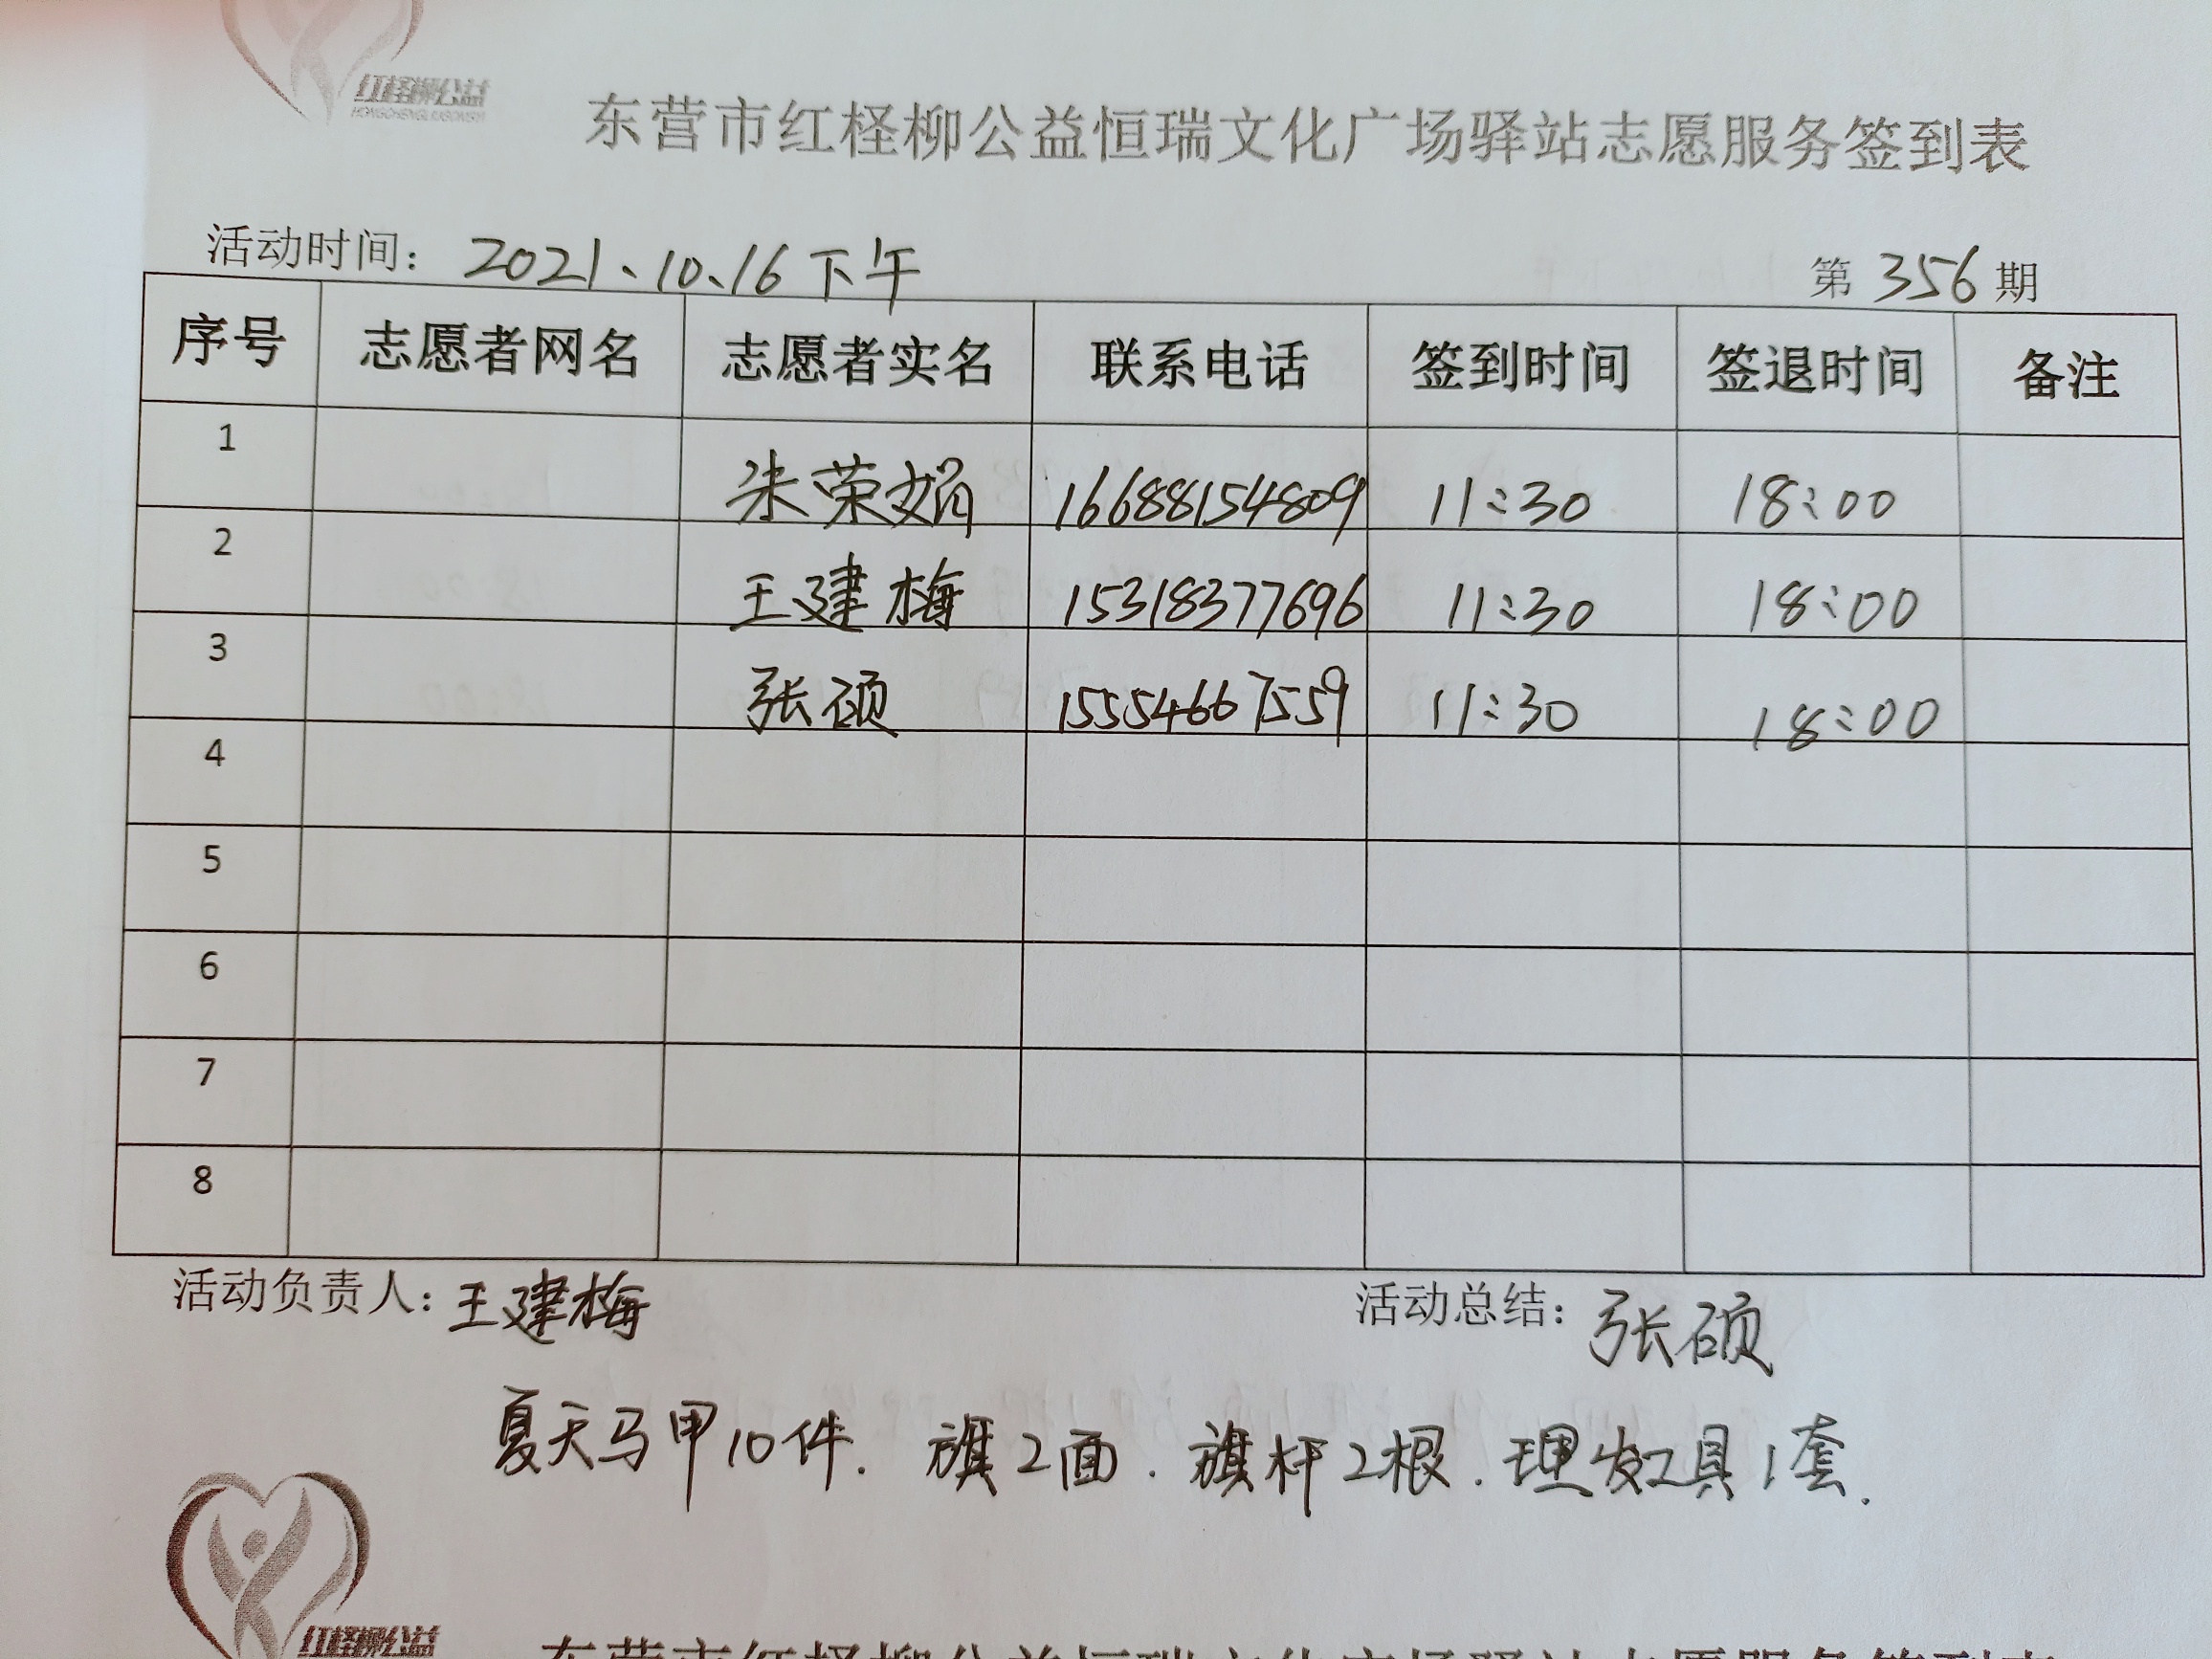 红柽柳公益
东营市红柽柳公益恒瑞文化广场驿站志愿服务签到表
活动时间：2021、10、16下午 第356期
序号 志愿者网名 志愿者实名 联系电话 签到时间 签退时间 备注
1 朱荣娟 16688154809 11:30 18:00
2 王建梅 15318377696 11:30 18:00
3 张硕 15554667559 11:30 18:00
4
5
6
7
8
活动负责人：王建梅 活动总结：张硕
夏天马甲10件. 旗2面. 旗杆2根. 理发工具1套.
红柽柳公益
东营市红柽柳公益恒瑞文化广场驿站志愿服务签到表